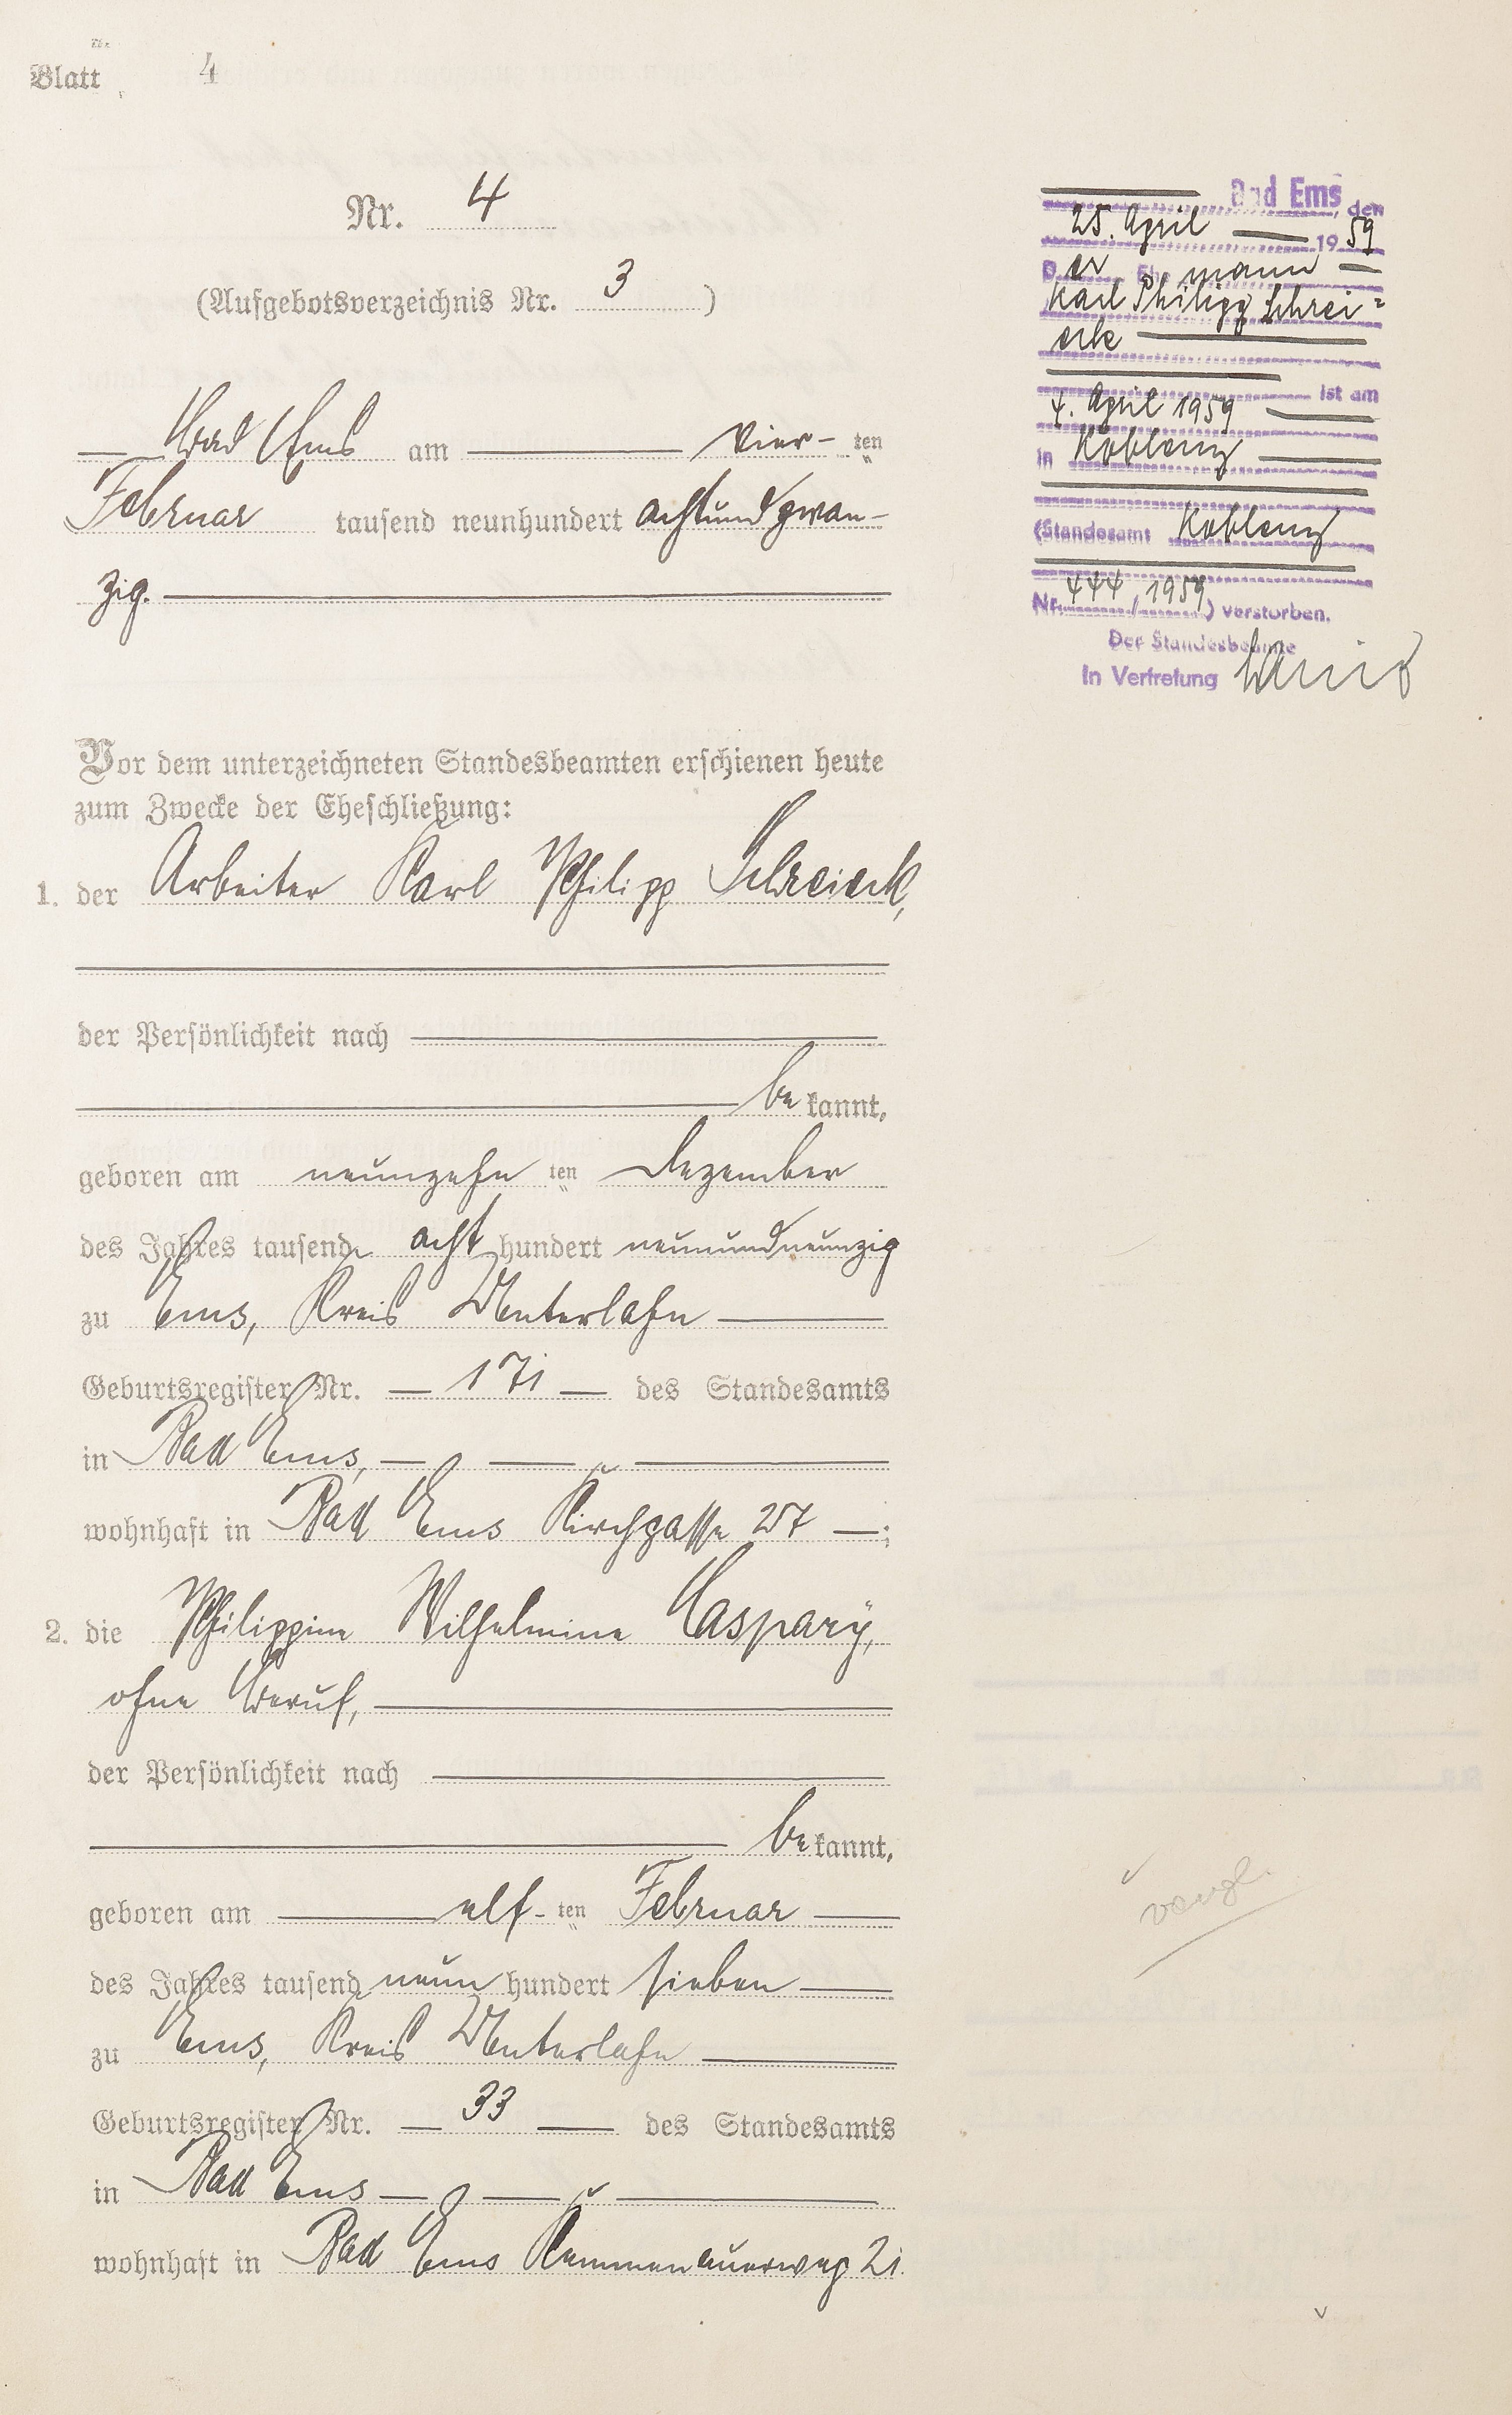 Blatt 4
Nr. 4
(Aufgebotsverzeichnis Nr. 3)
Bad Ems am vier- ten
Februar tausend neunhundert achtundzwan-
zig.
Vor dem unterzeichneten Standesbeamten erschienen heute
zum Zwecke der Eheschließung:
1. der Arbeiter Karl Philipp Schreieck,
der Persönlichkeit nach
be kannt,
geboren am neunzehn ten Dezember
des Jahres tausend acht hundert neunundneunzig
zu Ems, Kreis Unterlahn
Geburtsregister Nr. 171 des Standesamts
in Bad Ems,
wohnhaft in Bad Ems Kirchgasse 27 ;
2. die Philippine Wilhelmine Caspary,
ohne Beruf,
der Persönlichkeit nach
be kannt,
geboren am elf- ten Februar
des Jahres tausend neun hundert sieben
zu Ems, Kreis Unterlahn
Geburtsregister Nr. 33 des Standesamts
in Bad Ems
wohnhaft in Bad Ems Kemmenauerweg 21.
Bad Ems, den
25. April 1959
Der Ehemann
Karl Philipp Schrei=
eck
ist am
4. April 1959
in Koblenz
(Standesamt Koblenz
Nr. 444/1959) verstorben.
Der Standesbeamte
In Vertretung
vergl.